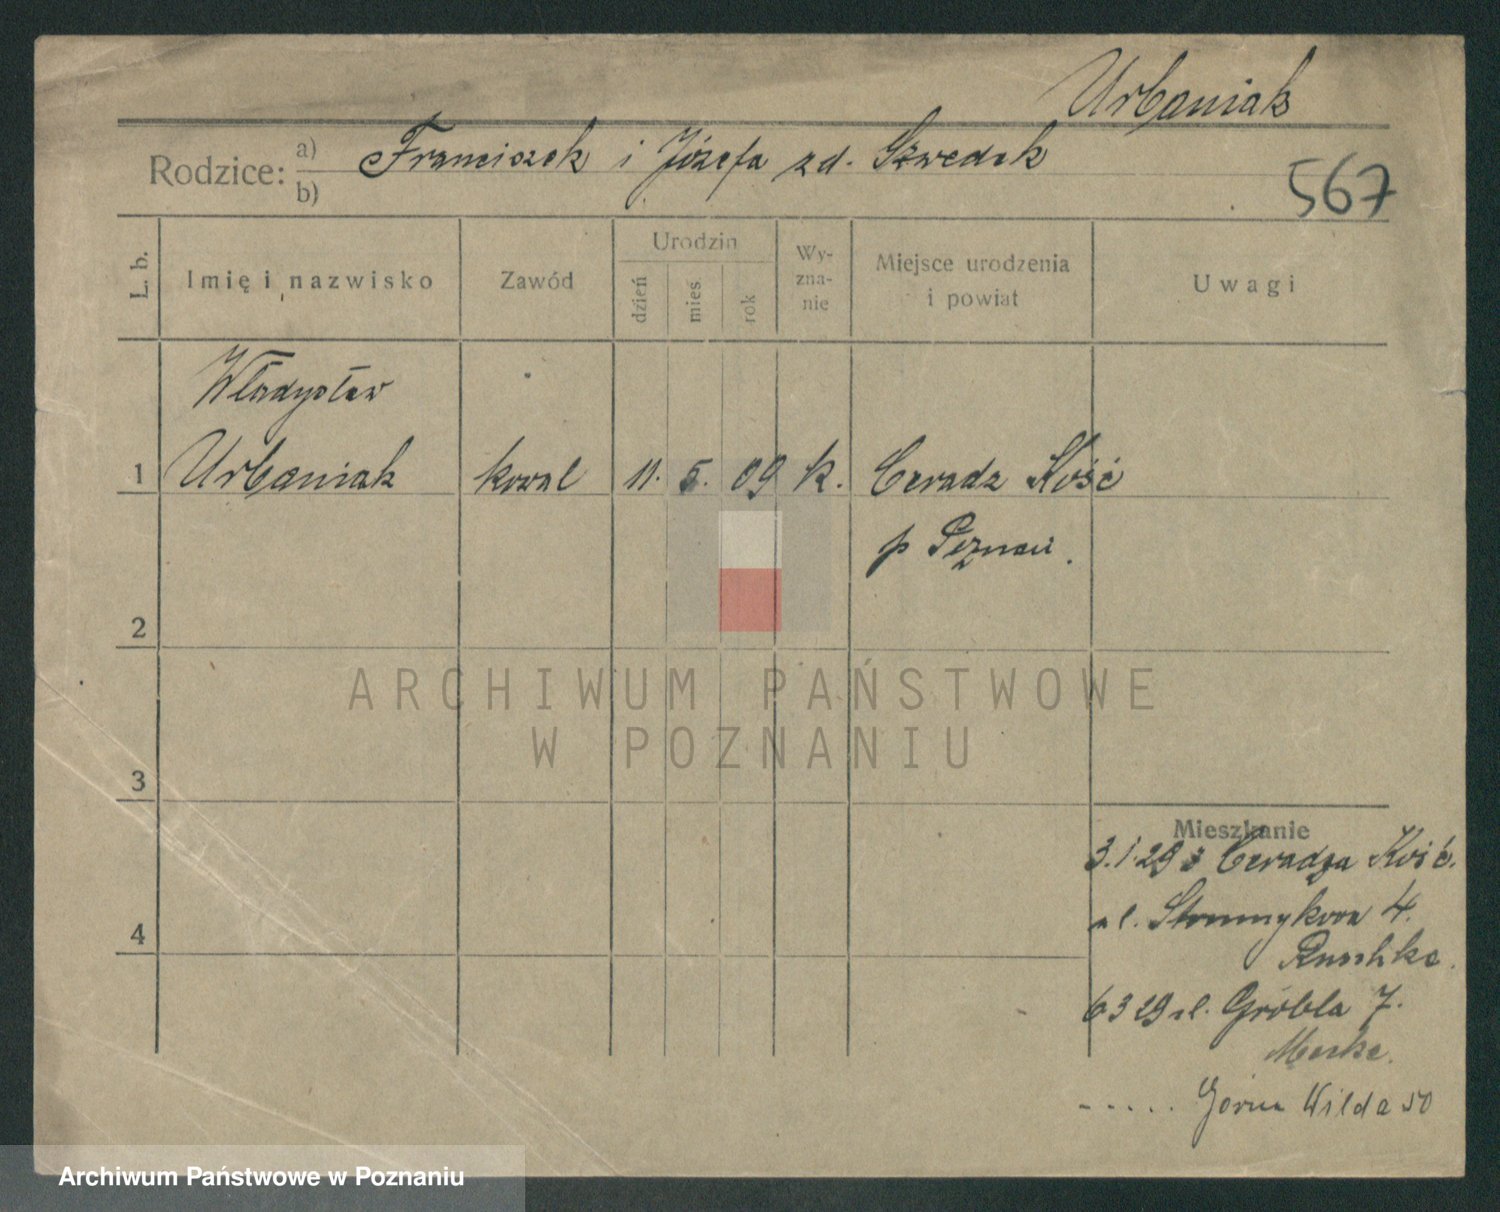 Urbaniak
Rodzice: a) Franciszek i Józefa zd. Szwedek
b)
567
L. b.
Imię i nazwisko
Zawód
Urodzin
dzień
mies.
rok
Wy-
zna-
nie
Miejsce urodzenia
i powiat
Uwagi
Władysław
1 Urbaniak kowal 11. 5. 09 k. Ceradz Kość
p Poznań.
2
ARCHIWUM PAŃSTWOWE
W POZNANIU
3
Mieszkanie
3.1.29 z Ceradza Kość.
4
ul. 4.
6 3 29 ul. Grobla 7.
..... Górna Wilda 50
Archiwum Państwowe w Poznaniu